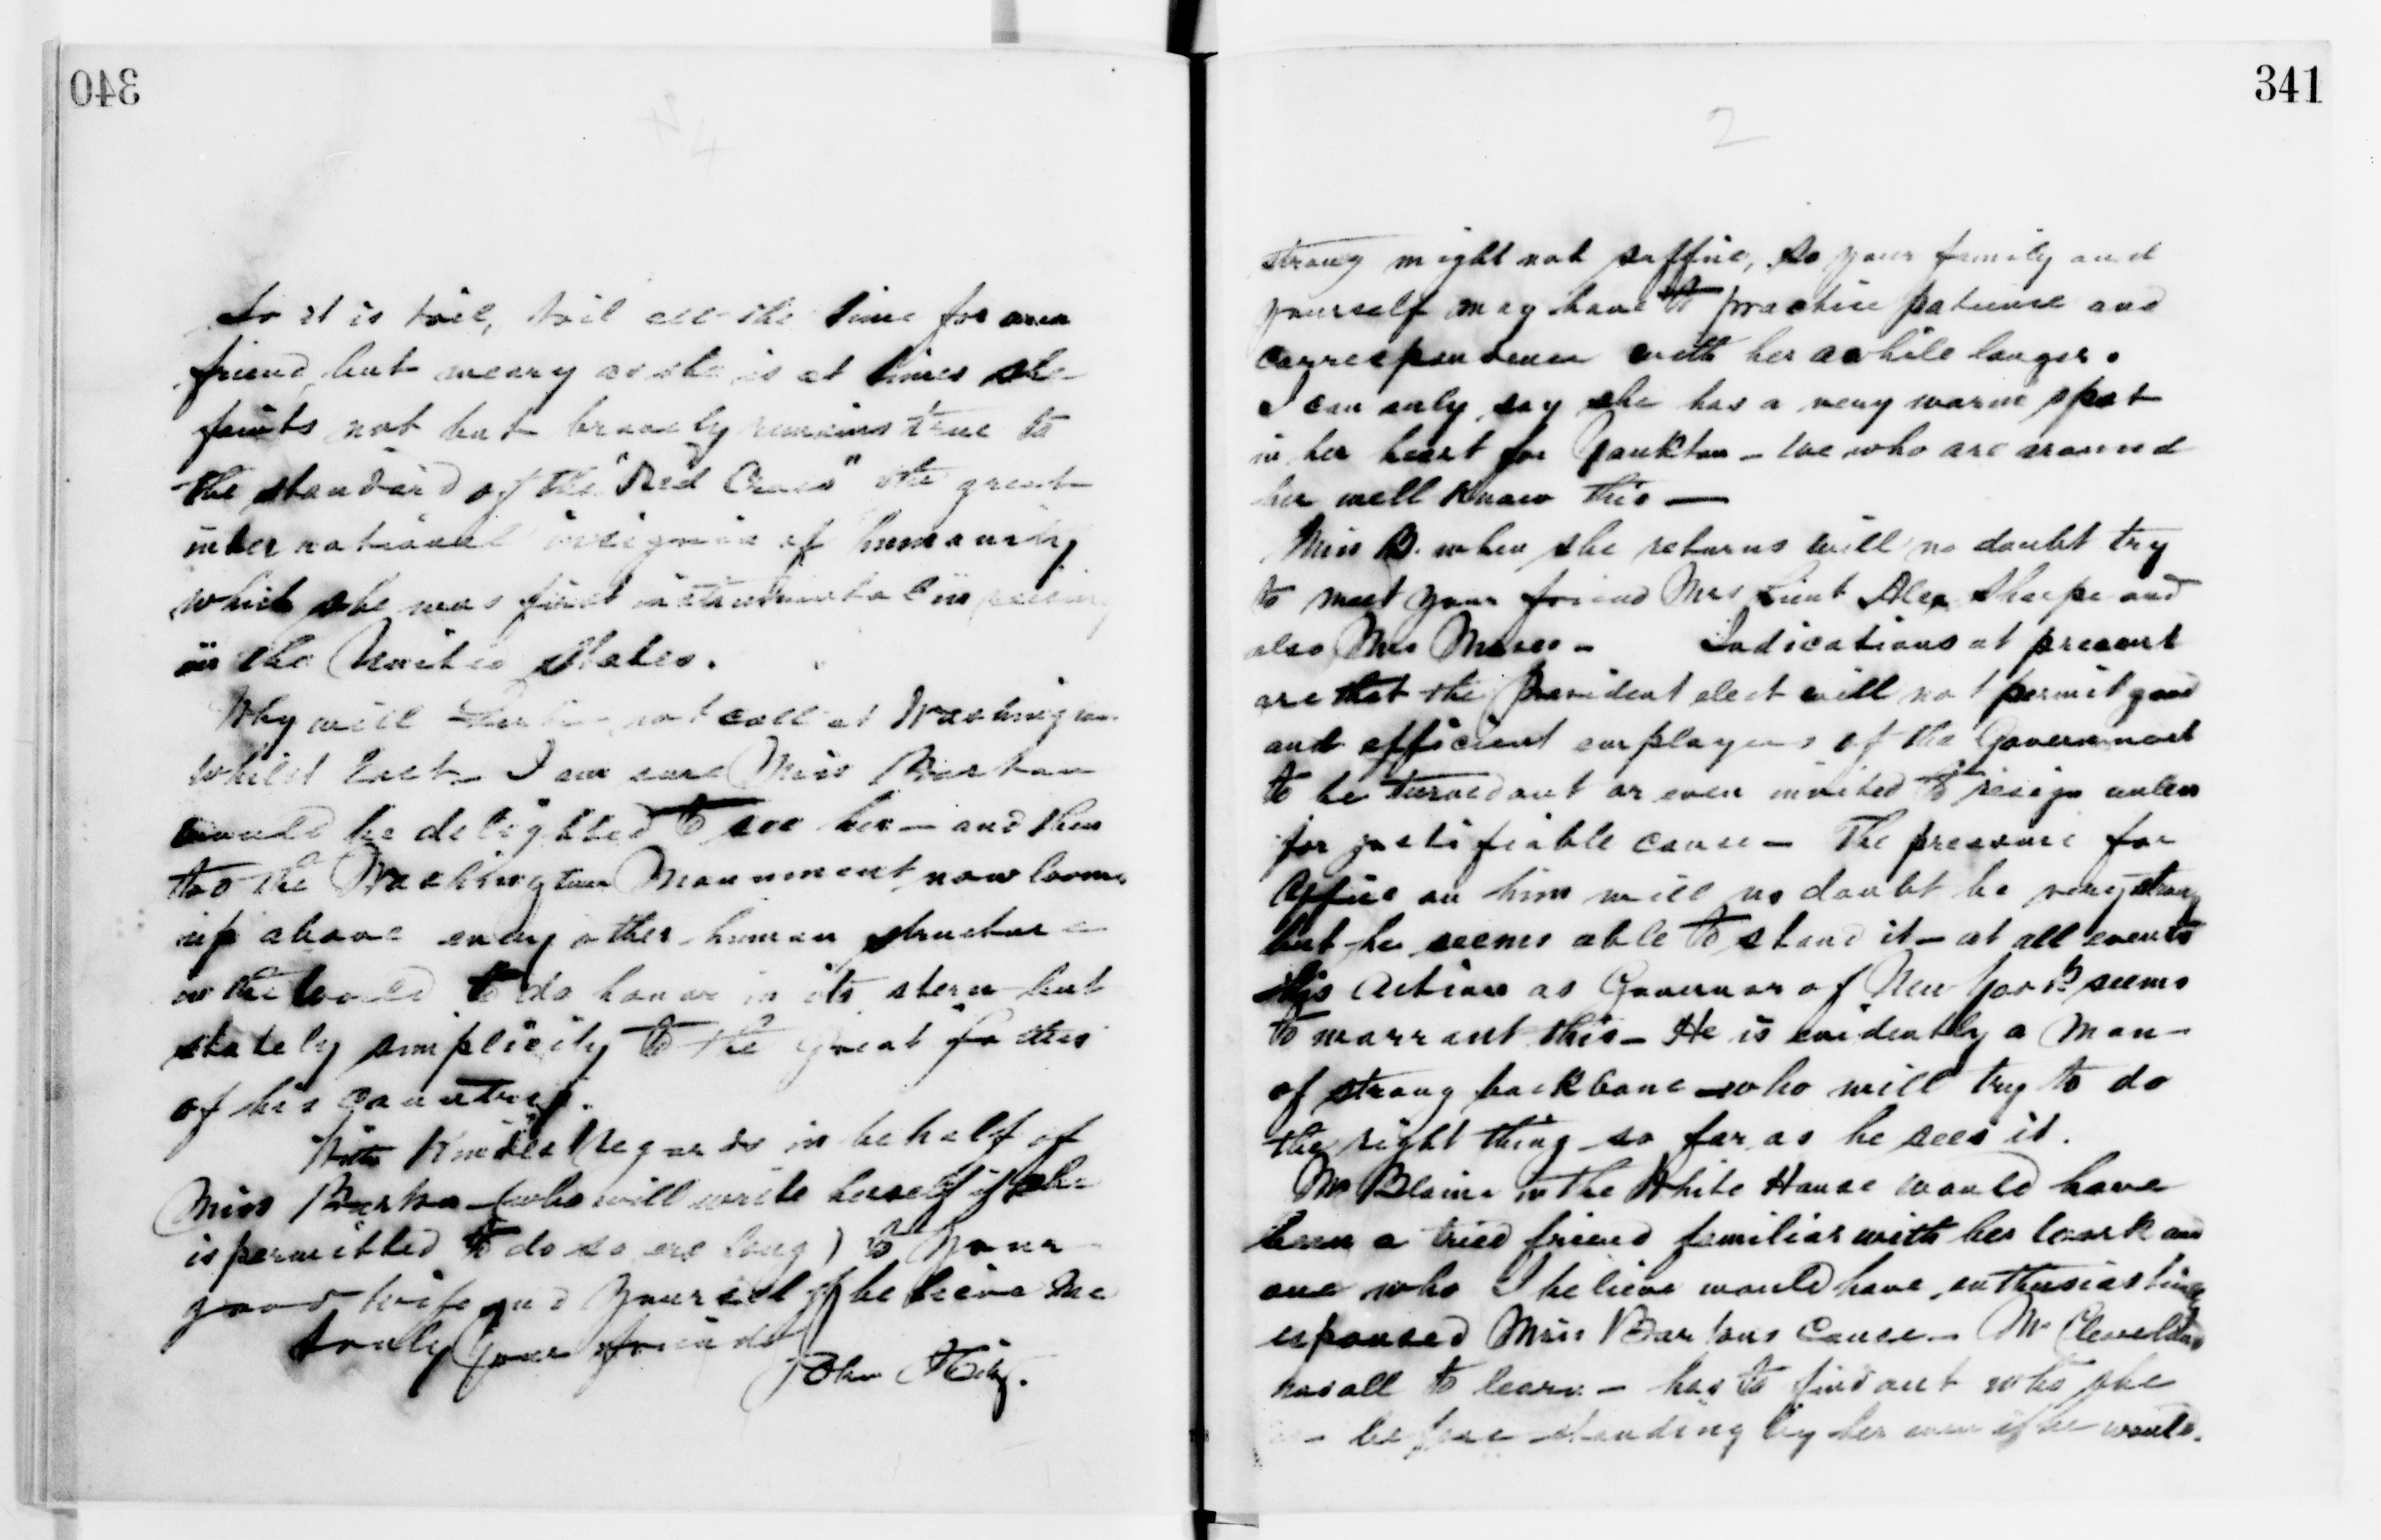 340
So it is toil, toil all the time for our
friend, but weary as she is at times she
faints not but bravely remains true to
the standard of the "Red Cross" the great
international insignia of humanity
which she was first instrumental in raising
in the United States.
Why will not call at Washington
whilst East - I am sure Miss Barton
would be delighted to see her - and then
too the Washington Monument now looms
up above every other human structure
in the world to do honor in its stern but
stately simplicity to the great father
of his country.
With kindest regards in behalf of
Miss Barton (who will write herself if she
is permitted to do so ere long) to your
good wife and yourself believe me
truly your friend
John Hitz.
341
2
strong might not suffice, so your family and
yourself may have to practice patience and
correspondence with her awhile longer.
I can only say she has a very warm spot
in her heart for Yankton - we who are around
her well know this -
Miss B. when she returns will no doubt try
to meet your friend Mrs Lieut Alex Sharpe and
also Mrs Moses - Indications at present
are that the President elect will not permit good
and efficient employees of the Government
to be turned out or even invited to resign unless
for justifiable cause - The pressure for
Office on him will no doubt be very strong
but he seems able to stand it - at all events
his action as Governor of New York seems
to warrant this - He is evidently a man
of strong backbone who will try to do
the right thing so far as he sees it.
Mr Blaine in the White House would have
been a tried friend familiar with her work and
one who I believe would have enthusiastically
espoused Miss Bartons cause - Mr Cleveland
has all to learn - has to find out who she
is - before standing by her even if he would.